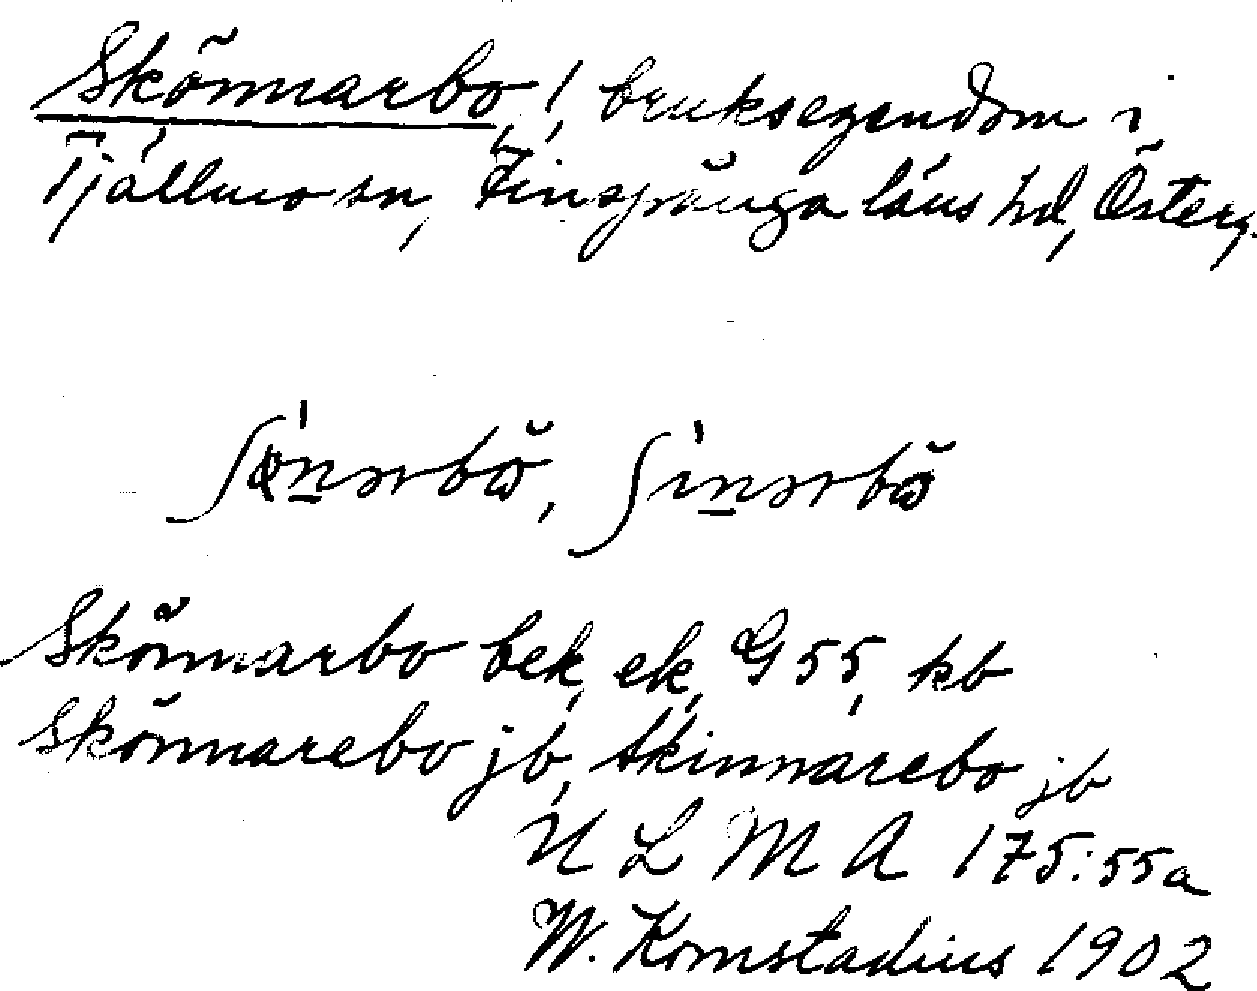 Skönnarbo, !, bruksegendom i
Tjällmo sn, Finspånga läns hd, Österg.
ʃönərbω̆, ʃinərbω̆
Skönnarbo bek, ek, G 55, kb
Skönnarebo jb, Skinnarebo jb
ULMA 175:55a
W. Komstadius 1902